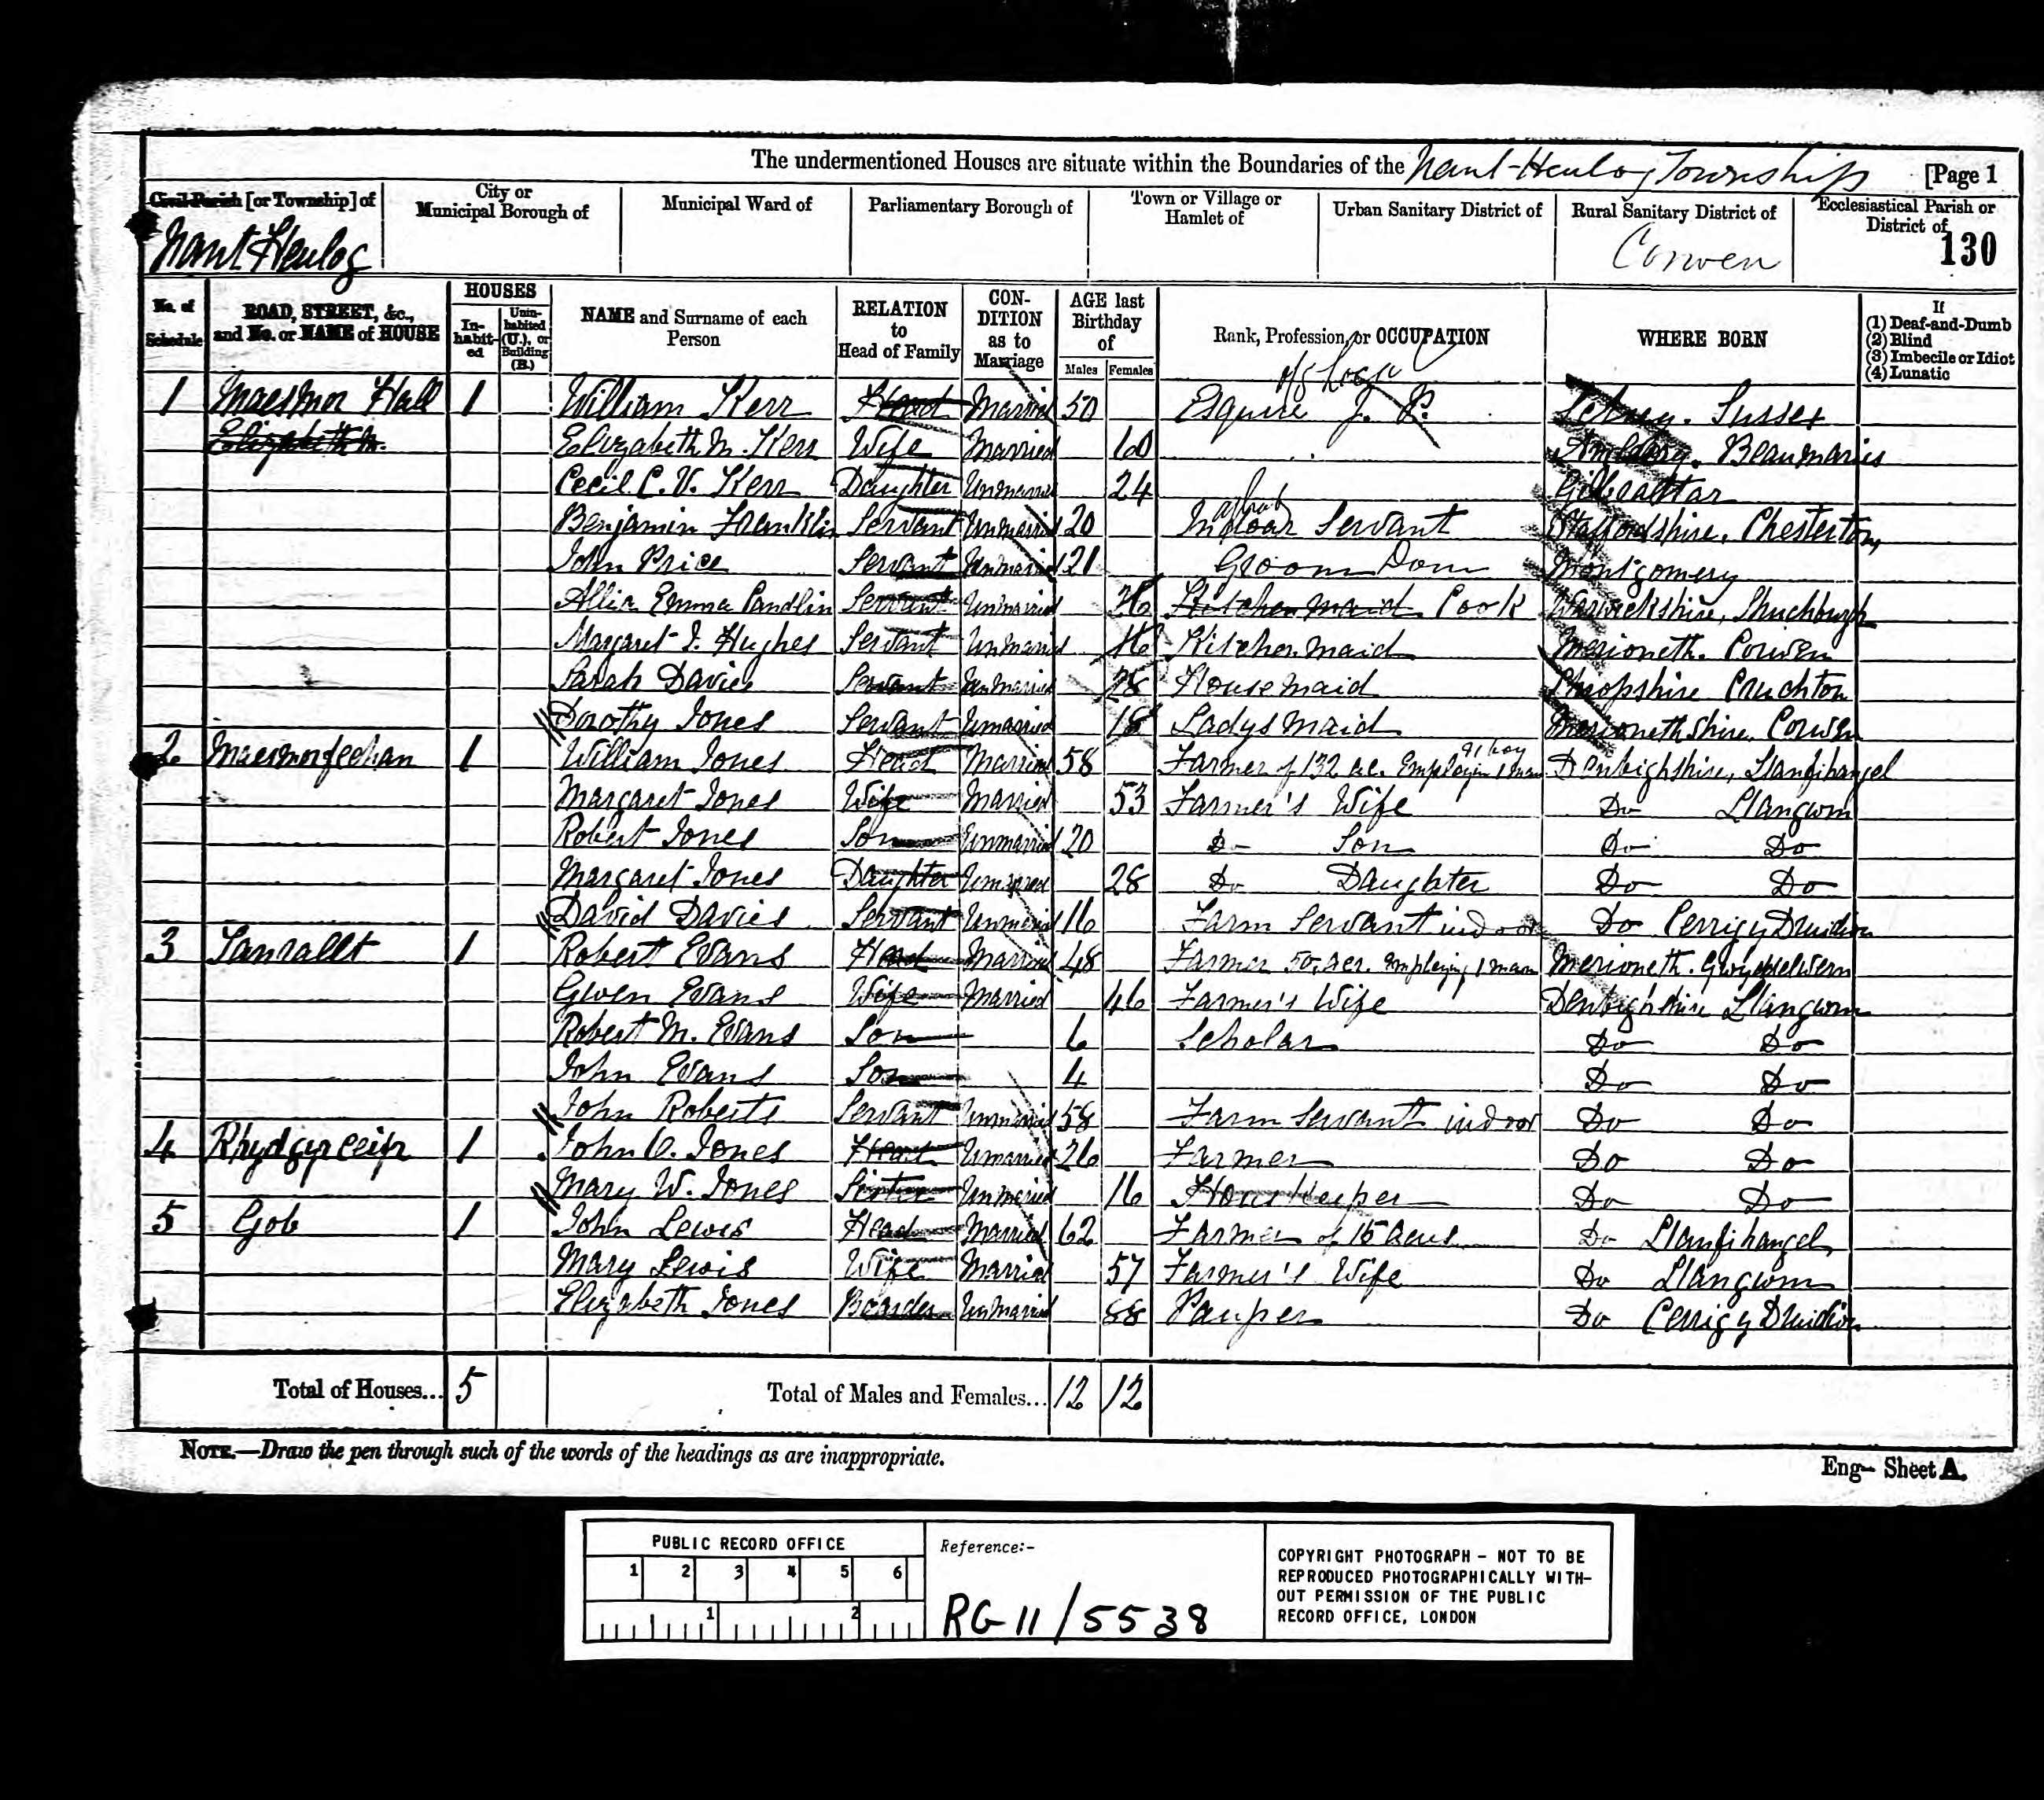 The undermentioned Houses are situate within the Boundaries of the Nant Heulog Township [Page 1
Civil Parish [or Township] of
City or Municipal Borough of
Municipal Ward of
Parliamentary Borough of
Town or Village or Hamlet of
Urban Sanitary District of
Rural Sanitary District of
Ecclesiastical Parish or District of
Nant Heulog Corwen 130
No. of Schedule
ROAD, STREET, &c., and No. or NAME of HOUSE
HOUSES
Inhabited
Uninhabited (U.), or Building (B.)
NAME and Surname of each Person
RELATION to Head of Family
CONDITION as to Marriage
AGE last Birthday of
Males Females
Rank, Profession, or OCCUPATION
WHERE BORN
If
(1) Deaf-and-Dumb
(2) Blind
(3) Imbecile or Idiot
(4) Lunatic
1 Maesmor Hall 1 William Kerr Head Married 50 Esquire J. P. Sussex
Elizabeth M. Elizabeth M. Kerr Wife Married 60 Beaumaris
Cecil C. V. Kerr Daughter Unmarried 24 Gibraltar
Benjamin Franklin Servant Unmarried 20 Indoor Servant Staffordshire, Chesterton
John Price Servant Unmarried 21 Groom Dom Montgomery
Emma Servant Unmarried 26 Kitchen maid Cook Warwickshire,
Margaret J. Hughes Servant Unmarried 16 Kitchen maid Merioneth. Corwen
Sarah Davies Servant Unmarried 28 House maid Shropshire
Dorothy Jones Servant Unmarried 18 Ladys Maid Merionethshire. Corwen
2 Maesmorfechan 1 William Jones Head Married 58 Farmer of 132 ac. Employing 1 man & 1 boy Denbighshire, Llanfihangel
Margaret Jones Wife Married 53 Farmer's Wife Do Llangwm
Robert Jones Son Unmarried 20 Do Son Do Do
Margaret Jones Daughter Unmarried 28 Do Daughter Do Do
David Davies Servant Unmarried 16 Farm Servant indoor Do Cerrigydruidion
3 Tanrallt 1 Robert Evans Head Married 48 Farmer 50 acr. Employing 1 man Merioneth. Gwyddelwern
Gwen Evans Wife Married 46 Farmer's Wife Denbighshire Llangwm
Robert M. Evans Son 6 Scholar Do Do
John Evans Son 4 Do Do
John Roberts Servant Unmarried 58 Farm Servant indoor Do Do
4 1 John O. Jones Head Unmarried 26 Farmer Do Do
Mary W. Jones Sister Unmarried 16 Housekeeper Do Do
5 Gob 1 John Lewis Head Married 62 Farmer of 15 acres Do Llanfihangel
Mary Lewis Wife Married 57 Farmer's Wife Do Llangwm
Elizabeth Jones Boarder Unmarried 88 Pauper Do Cerrigydruidion
Total of Houses... 5 Total of Males and Females... 12 12
NOTE.—Draw the pen through such of the words of the headings as are inappropriate.
Eng— Sheet A.
PUBLIC RECORD OFFICE
1 2 3 4 5 6
1 2
Reference:-
RG 11/5538
COPYRIGHT PHOTOGRAPH – NOT TO BE
REPRODUCED PHOTOGRAPHICALLY WITH-
OUT PERMISSION OF THE PUBLIC
RECORD OFFICE, LONDON